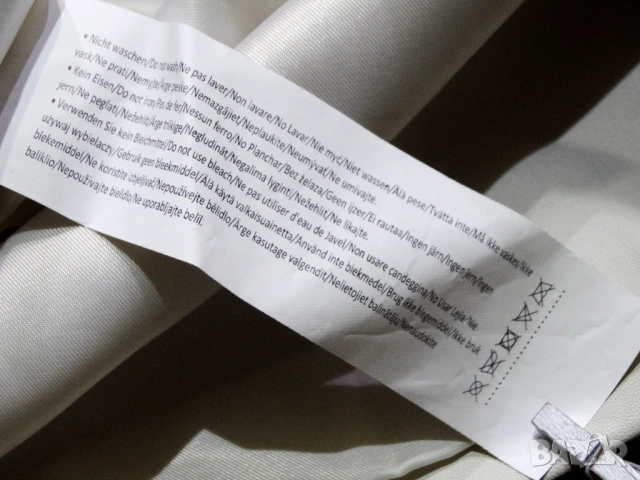 • Nicht waschen/Do not wash/Ne pas laver/Non lavare/No Lavar/Nie myć/Niet wassen/Älä pese/Tvätta inte/Må ikke vaskes/Ikke
vask/Ne prati/Nemyte/Ärge peske/Nemazgājiet/Neplaukite/Neumývať/Ne umivajte.
• Kein Eisen/Do not iron/Pas de fer/Nessun ferro/No Planchar/Bez żelaza/Geen ijzer/Ei rautaa/Ingen järn/Ingen jern/Ingen
jern/Ne peglati/Nežehlit/Ärge triikige/Negludināt/Negalima lyginti/Nežehliť/Ne likajte.
• Verwenden Sie kein Bleichmittel/Do not use bleach/Ne pas utiliser d'eau de Javel/Non usare candeggina/No Usar Lejía/Nie
używaj wybielaczy/Gebruik geen bleekmiddel/Älä käytä valkaisuainetta/Använd inte blekmedel/Brug ikke blegemiddel/Ikke bruk
blekemiddel/Ne koristite izbjeljivač/Nepoužívejte bělidlo/Ärge kasutage valgendit/Nelietojiet balinātāju/Nenaudokite
baliklio/Nepoužívajte bielidlo/Ne uporabljajte belil.
BAZAR